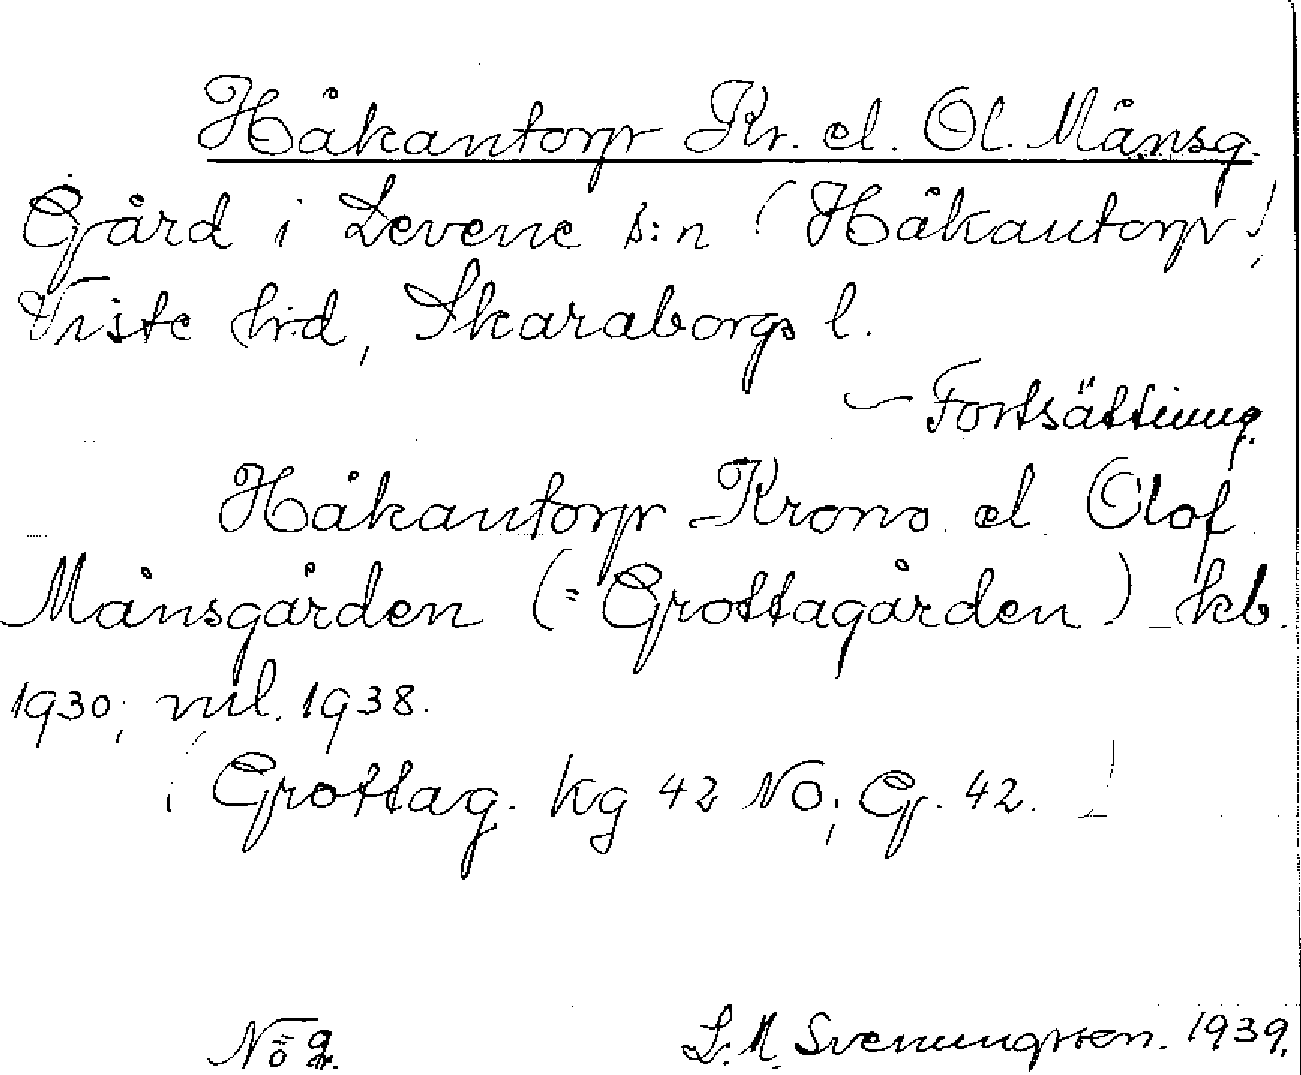 Håkantorp Kr. el. Ol. Månsg.
Gård i Levene s:n (Håkantorp)
Viste hrd, Skaraborgs l.
— Fortsättning.
Håkantorp Krono el Olof
Månsgården (= Grottagården) kb.
1930; mil. 1938.
( Grottag. kg 42 NO; G. 42. )
L. M. Svenungsson. 1939.